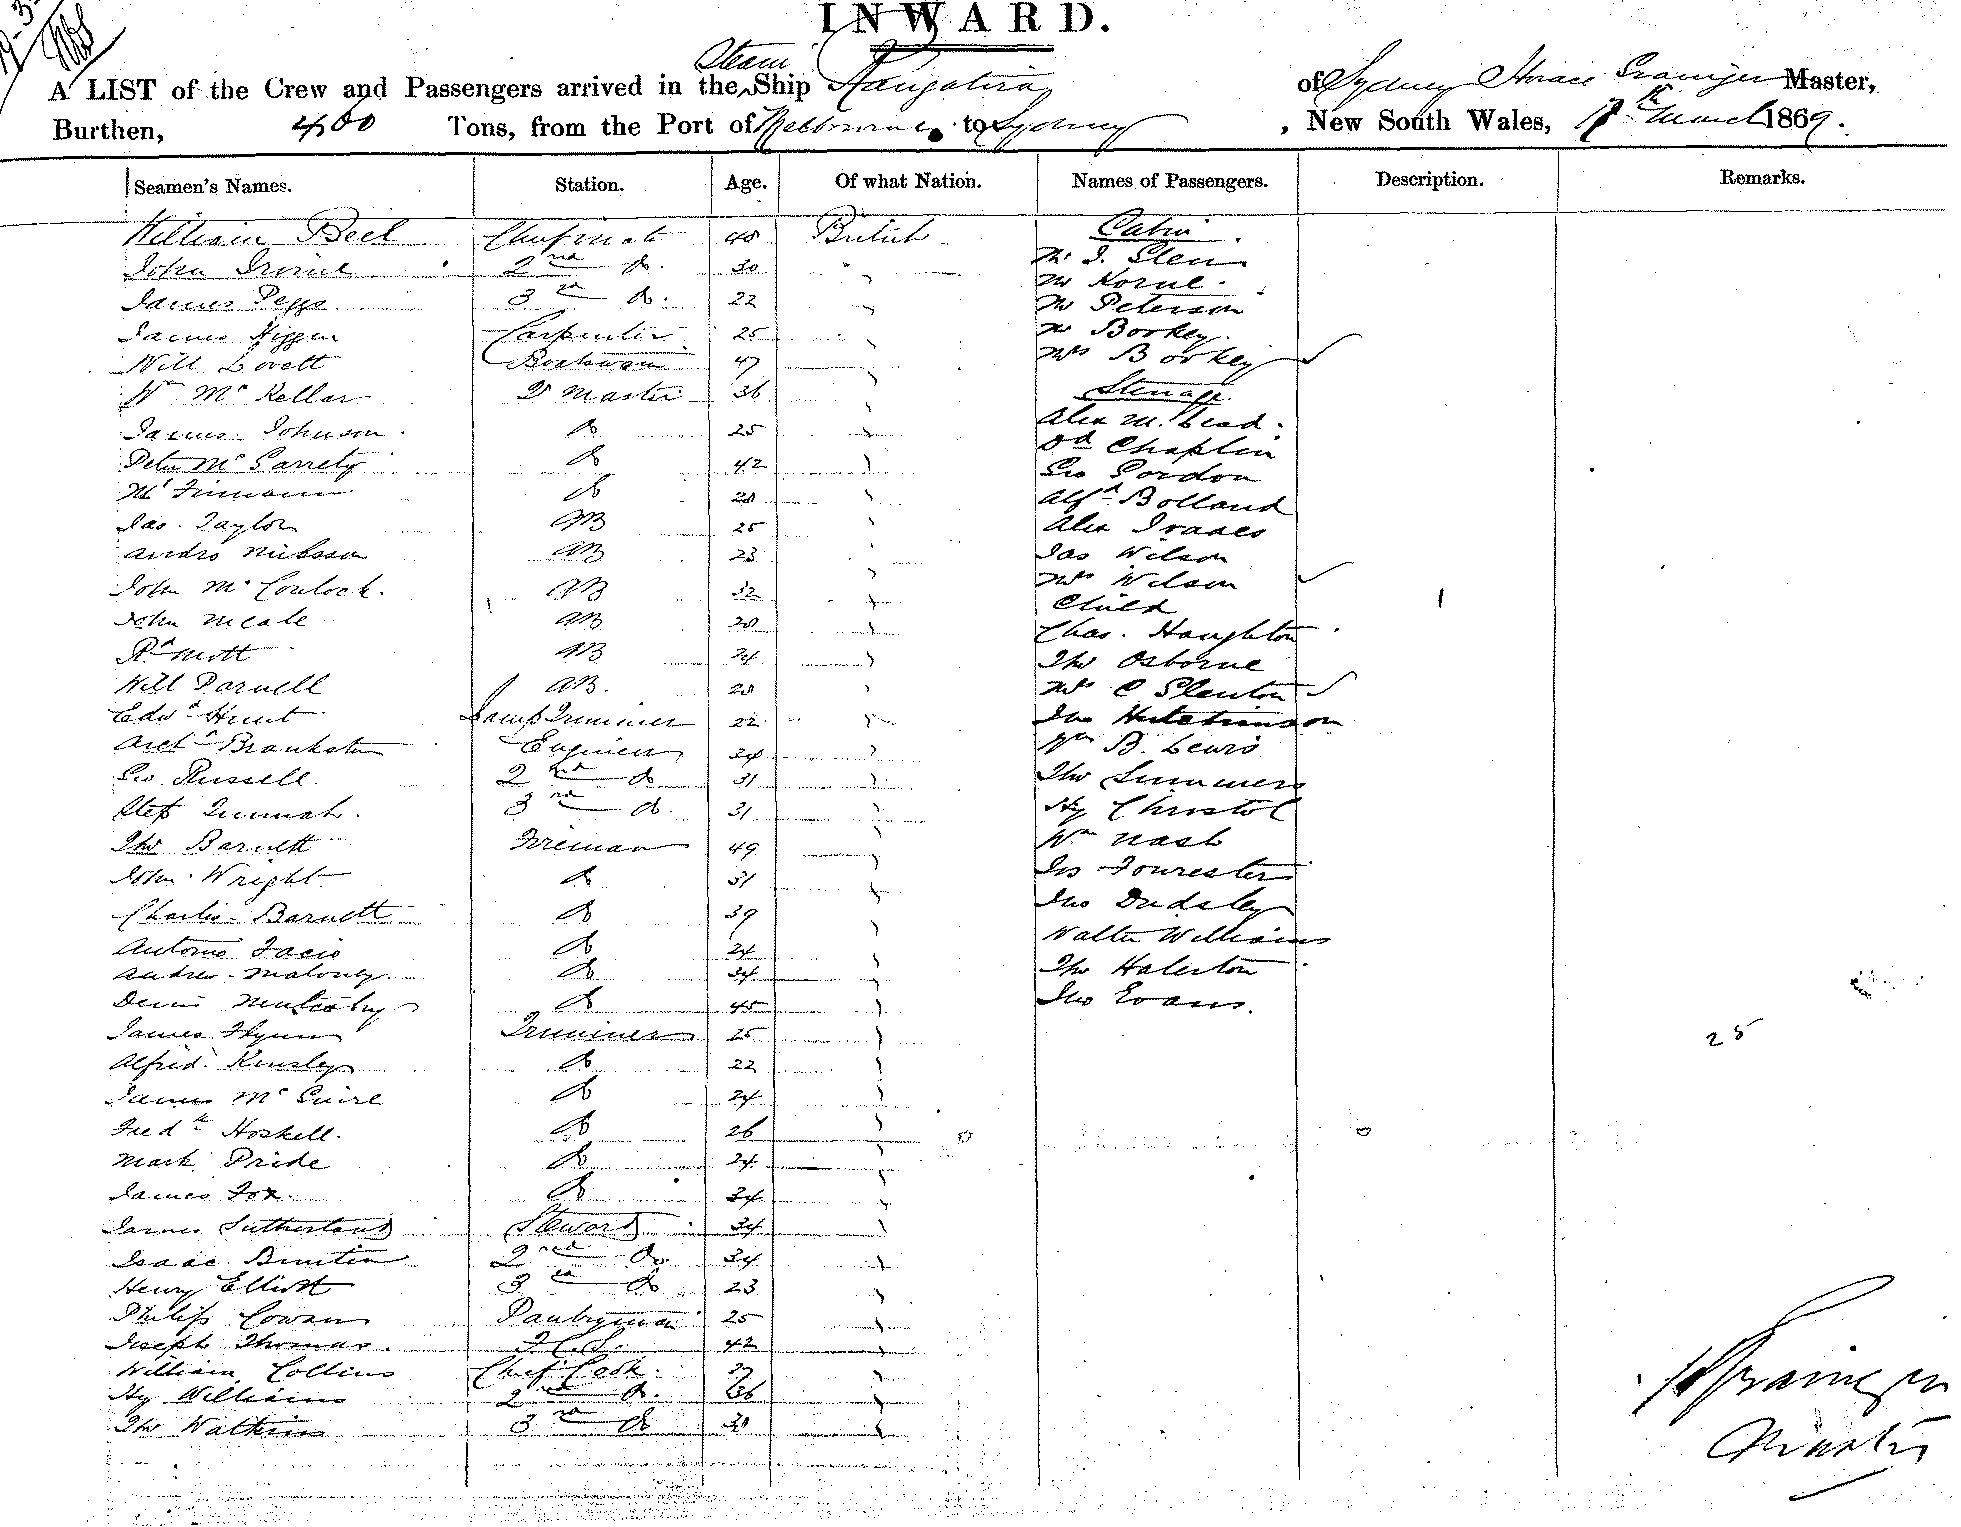 INWARD.
A LIST of the Crew and Passengers arrived in the Steam Ship Rangatira of Sydney Horace Grainger Master,
Burthen, 400 Tons, from the Port of Melbourne to Sydney, New South Wales, March 1869.
Seamen's Names. Station. Age. Of what Nation. Names of Passengers. Description. Remarks.
William Beel Chief mate 40 British Cabin.
John Irvine 2nd Do. 30 Mr. J. Glen
James Peggs 3rd Do. 22 Mr Horne
Mr Peterson
James Higgen Carpenter 25 Mr Borkey.
Will Lovett Boatswain 47 Mrs Borkey
Wm McKellar Qr Master 36 Steerage.
James Johnson Do 25 Alex M. Lead.
Peter McGarrety Do 42 Chaplin
Do Geo Gordon
Jas. Taylor AB 25 Alfd Bolland
Andro AB 23 Alex Isaacs
John McCouloch. AB 32 Jas Wilson
Mrs Wilson
Child
John Meale AB Chas. Haughton
Rd Mott AB 24 Thos Osborne
Will Parnell AB. Mrs C Slenton
Edwd Hunt Lamp Trimmer 22 Jno Hutchinson
Archd Brankston Engineer 34 Wm B. Lewis
Geo Russell. 2nd Do 31 Thos Summers
Step 3rd Do. 31 Hy Christol
Thos Barnett Fireman 49 Wm Nash
John Wright Do 31 Jos Fourester
Charlie Barnett Do 39 Jno Dudsley
Antonio Do 24 Walter Williams
Andrew Maloney. Do 34 Thos Halerton
Denis Mulcahy Do 45 Jno Evans.
James Flynn Trimmer 25 25
Alfred Kinsley Do 22
James McGuire Do 24
Fredk Hoskell. Do 26
Mark Pride Do 24
James Fox. Do 34
James Sutherland Steward 34
Isaac Buntin 2nd Do 34
Henry Elliott 3rd Do 23
Philip Cowan Pantryman 25
Joseph Thomas. F.C.S. 42
William Collins Chief Cook.
Hy Williams 2nd Do. 36
Thos Watkins 3rd Do
H Grainger
Master